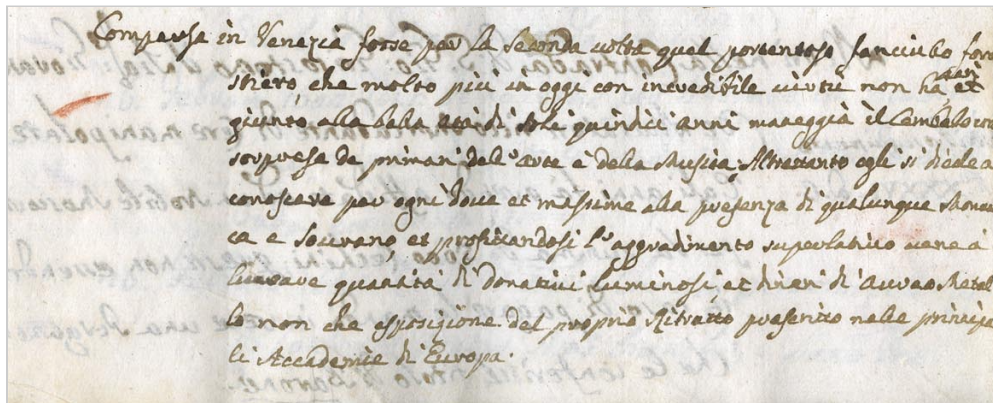 Comparsa in Venezia forse per la seconda volta quel portentoso fanciulo fore
stiero che molto più in oggi con incredibile virtù non ha
giunto alla bela età di soli quindici anni maneggia il Cembalo con
sorpresa de primari del'arte è della Musica; Altrettanto egli si diede a
conoscere per ogni dove et massime alla presenza di qualunque Monar
ca e Sovrano, et profitandosi l'aggradimento superlativo vene à
lucrare quantità di donativi luminosi, et dinari di Aureo Metal
lo non che esposizione del proprio Ritratto preferito nelle principa
li Accademie di Europa.